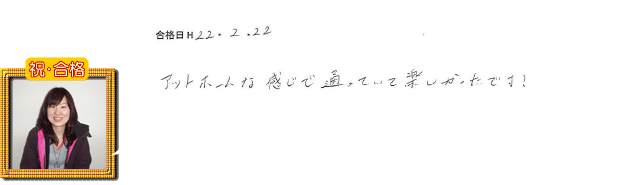 合格日 H 22.2.22
祝・合格
アットホームな感じで通っていて楽しかったです!